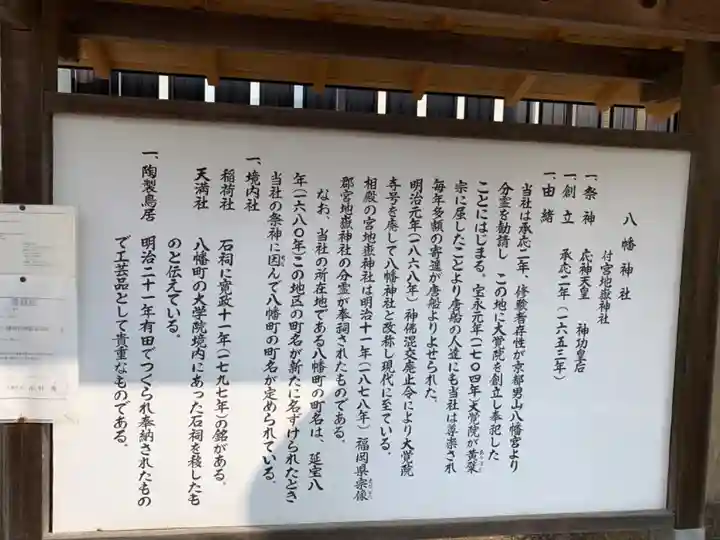 八幡神社
付宮地嶽神社
一、祭神 応神天皇 神功皇后
一、創立 承応二年(一六五三年)
一、由緒
当社は承応二年、修験者存性が京都男山八幡宮より
分霊を勧請し この地に大覚院を創立し奉祀した
ことにはじまる。宝永元年(一七〇四年)大覚院が黄檗
宗に属したことより唐船の人達にも当社は尊崇され
毎年多額の寄進が唐船よりよせられた。
明治元年(一八六八年)神佛混交廃止令により大覚院
寺号を廃して八幡神社と改称し現代に至ている。
相殿の宮地嶽神社は明治十一年(一八七八年)福岡県宗像
郡宮地嶽神社の分霊が奉祠されたものである。
なお、当社の所在地である八幡町の町名は、延宝八
年(一六八〇年)この地区の町名が新たに名ずけられたとき
当社の祭神に因んで八幡町の町名が定められている。
一、境内社
稲荷社 石祠に寛政十一年(一七九七年)の銘がある。
天満社 八幡町の大学院境内にあった石祠を移したも
のと伝えている。
一、陶製鳥居 明治二十一年有田でつくられ奉納されたもの
で工芸品として貴重なものである。